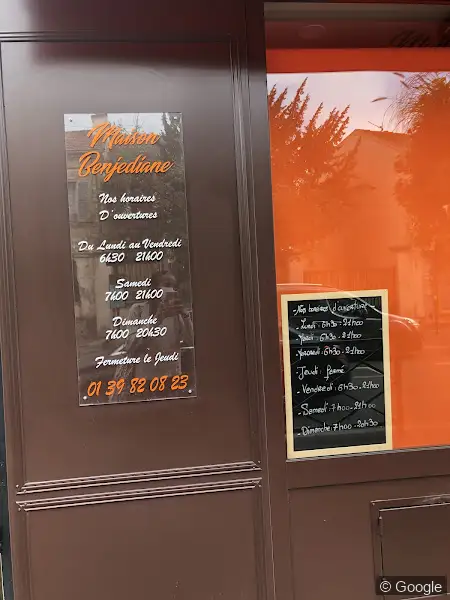 Maison
Benjediane
Nos horaires
D'ouvertures
Du Lundi au Vendredi
6h30 21h00
Samedi
7h00 21h00
Dimanche
7h00 20h30
Fermeture le Jeudi
01 39 82 08 23
- Nos horaires d'ouverture -
- Lundi : 6h30 - 21h00
- Mardi : 6h30 - 21h00
- Mercredi : 6h30 - 21h00
- Jeudi : fermé
- Vendredi : 6h30 - 21h00
- Samedi : 7h00 - 21h00
- Dimanche : 7h00 - 20h30
© Google